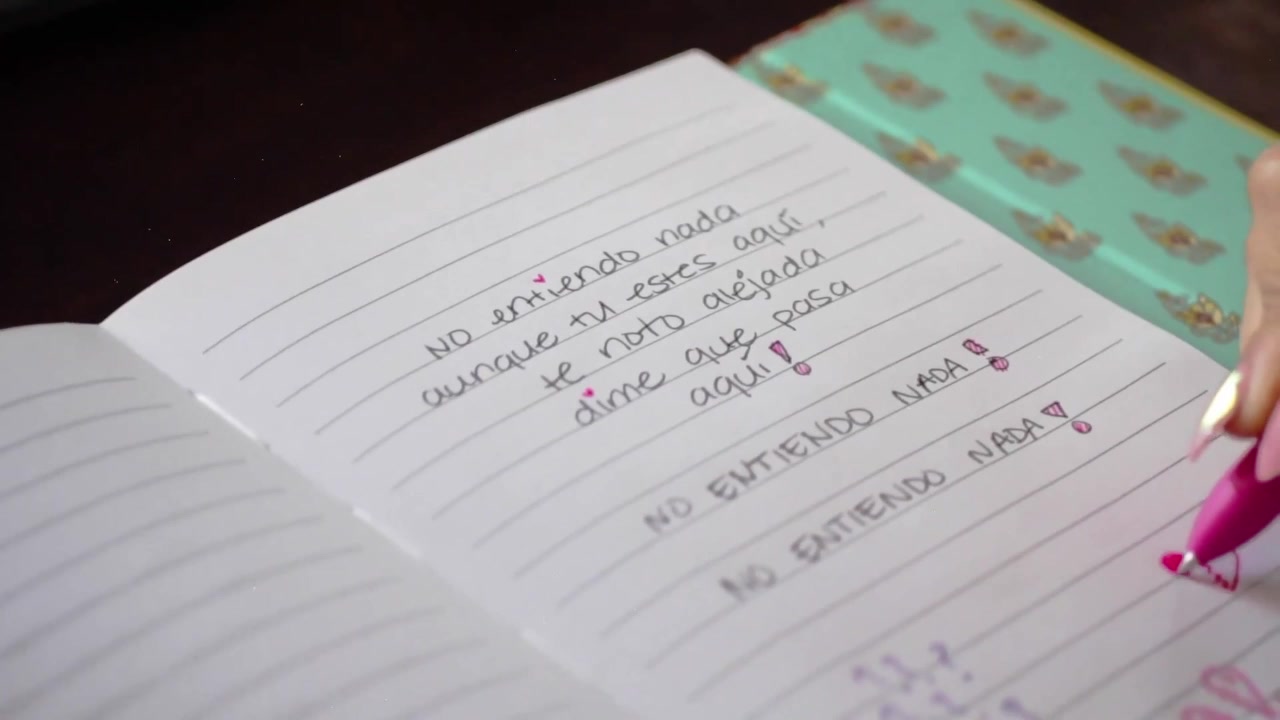 NO entiendo nada
aunque tu estes aquí,
te noto aléjada
dime que pasa
aquí!
NO ENTIENDO NADA!
NO ENTIENDO NADA!